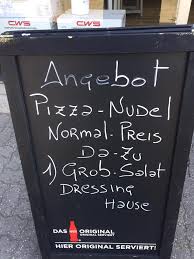 CWS
CWS
Angebot
Pizza-Nudel
Normal-Preis
Da-Zu
1) Grob-Salat
Dressing
Hause
DAS ORIGINAL
ORIGINAL SERVIERT
HIER ORIGINAL SERVIERT!